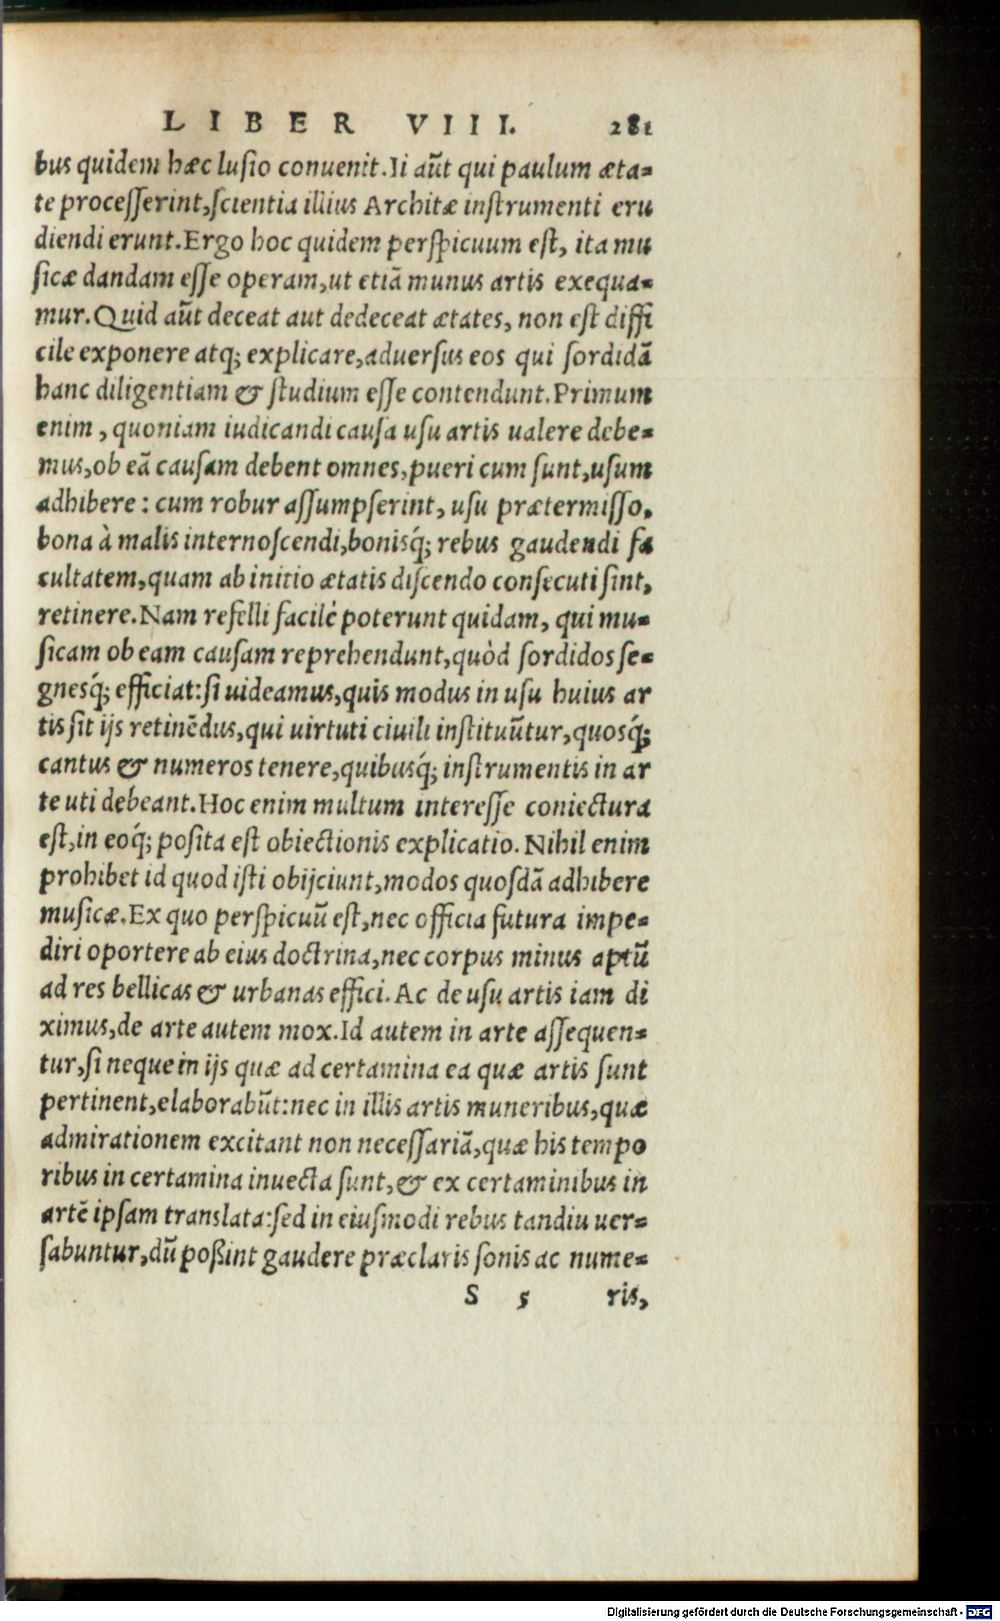 LIBER VIII. 281
bus quidem hæc lusio conuenit. Ii aũt qui paulum æta-
te processerint, scientia illius Architæ instrumenti eru
diendi erunt. Ergo hoc quidem perspicuum est, ita mu
sicæ dandam esse operam, ut etiã munus artis exequa-
mur. Quid aũt deceat aut dedeceat ætates, non est diffi
cile exponere atq; explicare, aduersus eos qui sordidã
hanc diligentiam & studium esse contendunt. Primum
enim, quoniam iudicandi causa usu artis ualere debe-
mus, ob eã causam debent omnes, pueri cum sunt, usum
adhibere: cum robur assumpserint, usu prætermisso,
bona à malis internoscendi, bonisq́; rebus gaudendi fa
cultatem, quam ab initio ætatis discendo consecuti sint,
retinere. Nam refelli facilè poterunt quidam, qui mu-
sicam ob eam causam reprehendunt, quòd sordidos se-
gnesq́; efficiat: si uideamus, quis modus in usu huius ar
tis sit ijs retinẽdus, qui uirtuti ciuili instituũtur, quosq́;
cantus & numeros tenere, quibusq́; instrumentis in ar
te uti debeant. Hoc enim multum interesse coniectura
est, in eoq́; posita est obiectionis explicatio. Nihil enim
prohibet id quod isti obijciunt, modos quosdã adhibere
musicæ. Ex quo perspicuũ est, nec officia futura impe-
diri oportere ab eius doctrina, nec corpus minus aptũ
ad res bellicas & urbanas effici. Ac de usu artis iam di
ximus, de arte autem mox. Id autem in arte assequen-
tur, si neque in ijs quæ ad certamina ea quæ artis sunt
pertinent, elaborabũt: nec in illis artis muneribus, quæ
admirationem excitant non necessariã, quæ his tempo
ribus in certamina inuecta sunt, & ex certaminibus in
artẽ ipsam translata: sed in eiusmodi rebus tandiu uer-
sabuntur, dũ poßint gaudere præclaris sonis ac nume-
S 5 ris,
Digitalisierung gefördert durch die Deutsche Forschungsgemeinschaft - DFG